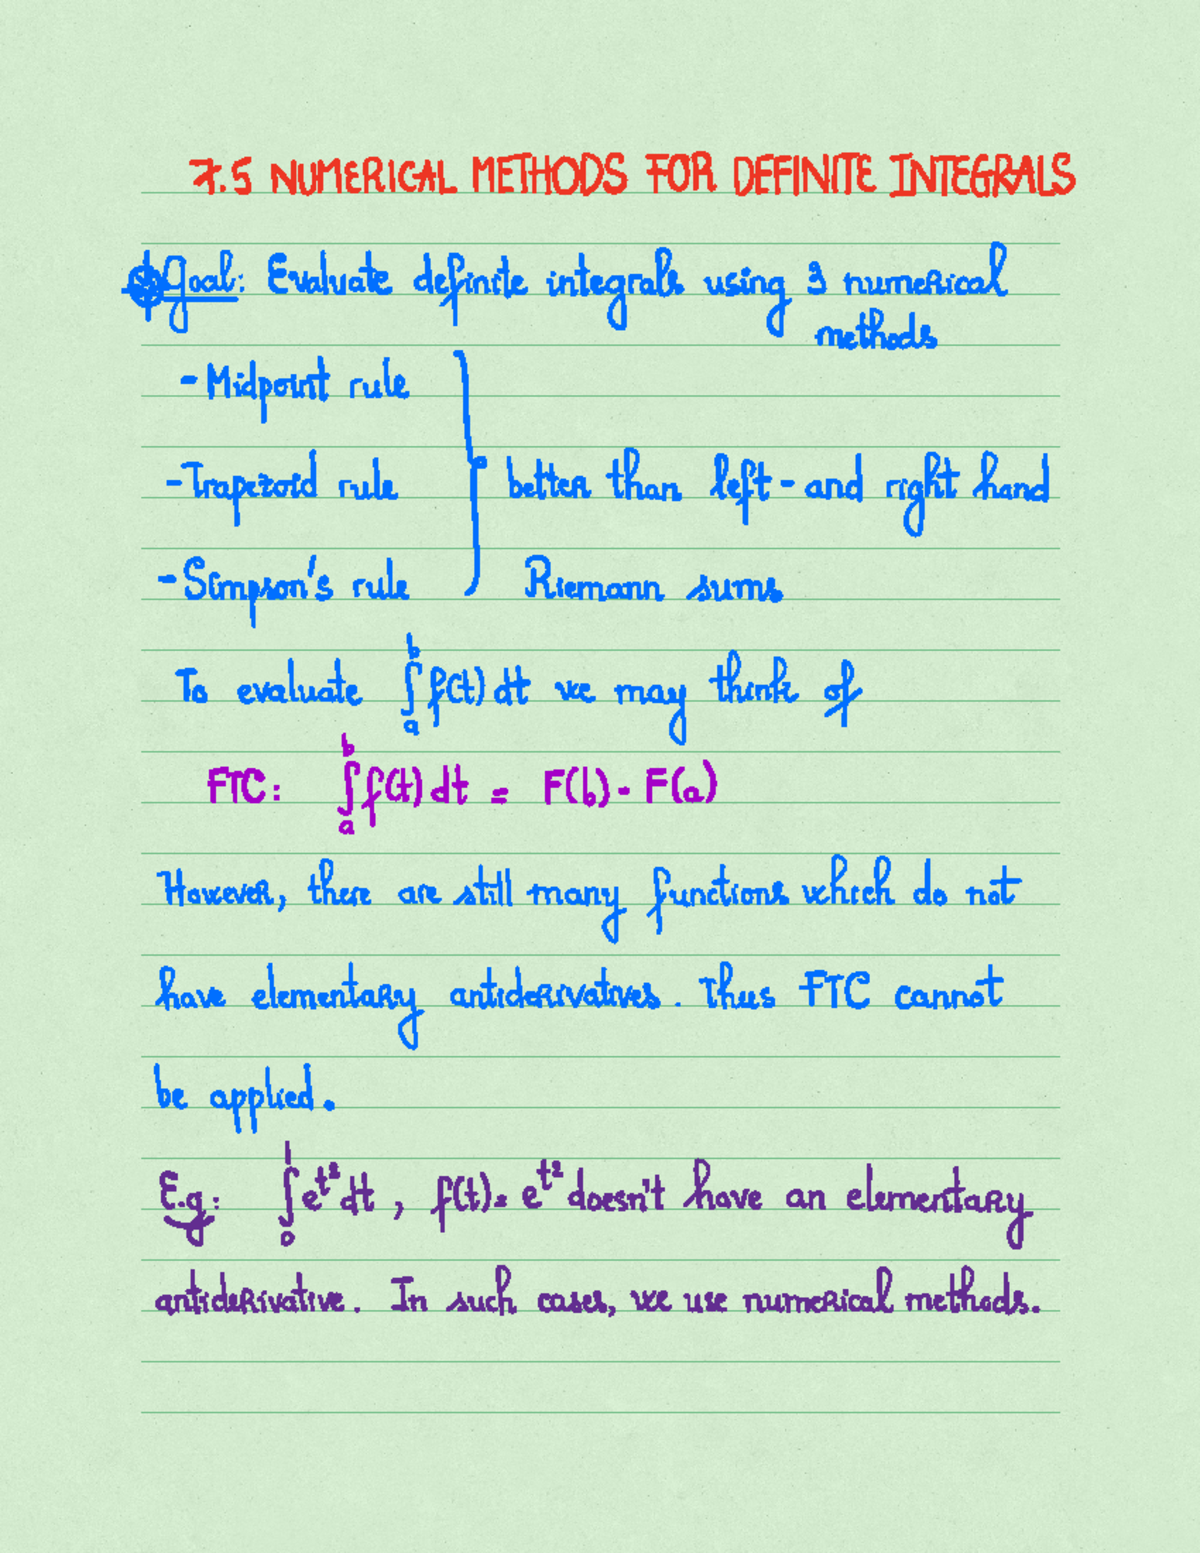 7.5 NUMERICAL METHODS FOR DEFINITE INTEGRALS
Goal: Evaluate definite integrals using 3 numerical
methods
- Midpoint rule
- Trapezoid rule } better than left- and right hand
- Simpson's rule Riemann sums
To evaluate ∫_a^b f(t) dt we may think of
FTC: ∫_a^b f(t) dt = F(b) - F(a)
However, there are still many functions which do not
have elementary antiderivatives. Thus FTC cannot
be applied.
E.g: ∫_0^1 e^{t²} dt, f(t) = e^{t²} doesn't have an elementary
antiderivative. In such cases, we use numerical methods.